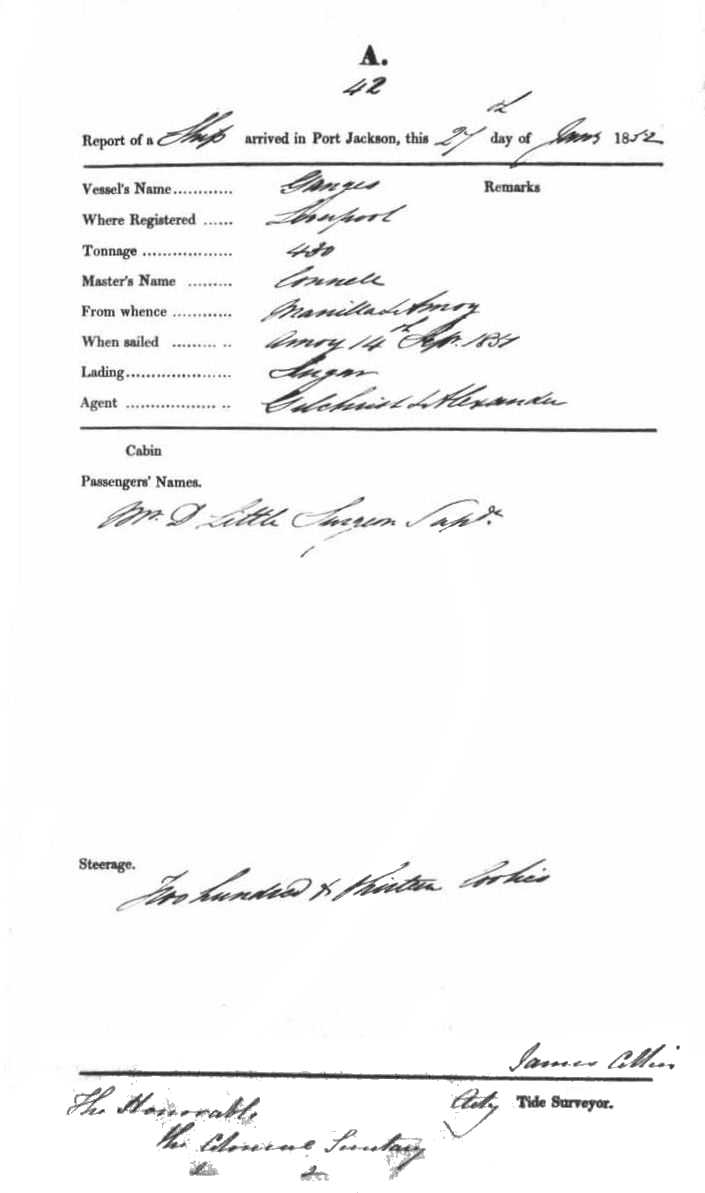 A.
42
Report of a Ship arrived in Port Jackson, this 27th day of Jany 1852
Vessel's Name............ Ganges Remarks
Where Registered ...... Liverpool
Tonnage .................. 430
Master's Name ......... Connell
From whence ............ Manilla & Amoy
When sailed ......... .. Amoy 14th Sep. 1851
Lading..................... Sugar
Agent .................. .. Gilchrist & Alexander
Cabin
Passengers' Names.
Mr. D Little Surgeon Supdt.
Steerage.
Two hundred & thirteen Coolies
James
Actg Tide Surveyor.
The Honorable
the Colonial Secretary